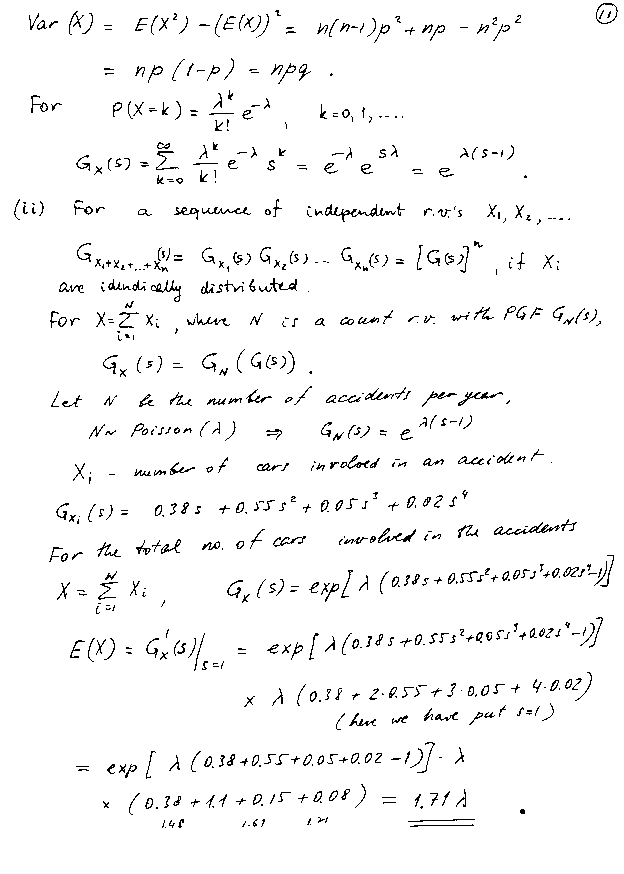 11
Var (X) = E(X²) - (E(X))² = n(n-1)p² + np - n²p²
= np (1-p) = npq .
For P(X=k) = λ^k/k! e^{-λ} , k=0, 1, ....
G_X(s) = Σ_{k=0}^{∞} λ^k/k! e^{-λ} s^k = e^{-λ} e^{sλ} = e^{λ(s-1)} .
(ii) For a sequence of independent r.v.'s X₁, X₂, ....
G_{X₁+X₂+...+Xₙ}(s) = G_{X₁}(s) G_{X₂}(s) ... G_{Xₙ}(s) = [G(s)]^n , if Xᵢ
are idendically distributed .
For X = Σ_{i=1}^{N} Xᵢ , where N is a count r.v. with PGF G_N(s),
G_X (s) = G_N (G(s)) .
Let N be the number of accidents per year,
N ~ Poisson (λ) ⇒ G_N(s) = e^{λ(s-1)}
Xᵢ - number of cars involved in an accident.
G_{Xᵢ}(s) = 0.38 s + 0.55 s² + 0.05 s³ + 0.02 s⁴
For the total no. of cars involved in the accidents
X = Σ_{i=1}^{N} Xᵢ , G_X (s) = exp[ λ (0.38s + 0.55s² + 0.05s³ + 0.02s⁴ - 1)]
E(X) = G'_X(s)|_{s=1} = exp [ λ (0.38s + 0.55s² + 0.05s³ + 0.02s⁴ - 1)]
× λ (0.38 + 2·0.55 + 3·0.05 + 4·0.02)
(here we have put s=1)
= exp [ λ (0.38 + 0.55 + 0.05 + 0.02 - 1)] · λ
× (0.38 + 1.1 + 0.15 + 0.08) = 1.71 λ .
1.48 1.63